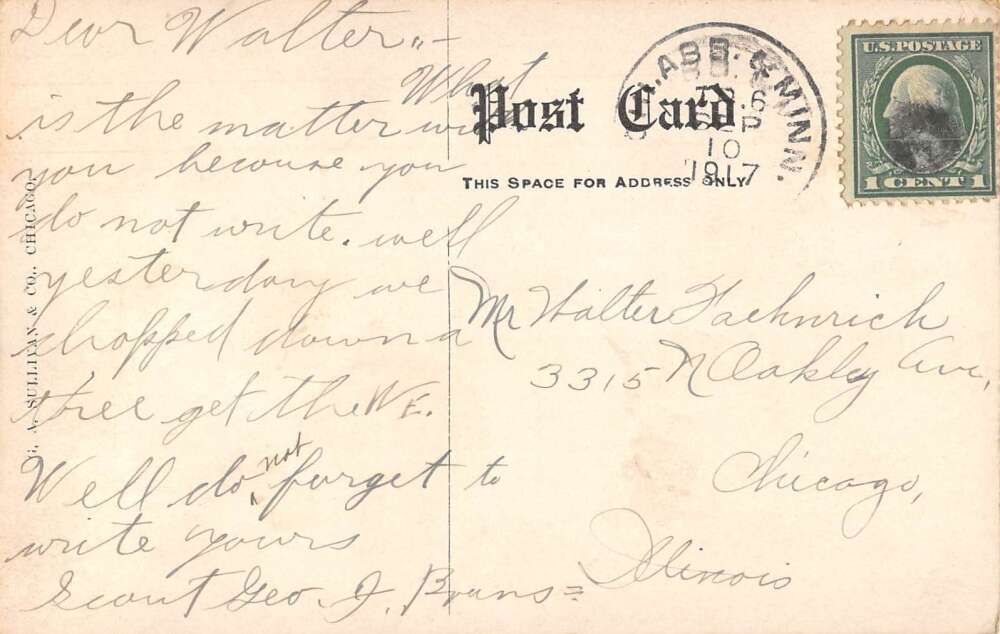 Dear Walter,,-
What
is the matter with
you because you
do not write. well
yesterday we
chopped down a
tree get the
Well do not forget to
write yours
Scout Geo. J.
Post Card
THIS SPACE FOR ADDRESS ONLY
ABR. & MINN.
SEP
10
1917
U.S. POSTAGE
1 CENT 1
Mr Walter Faehnrich
3315 N Oakley Ave,
Chicago,
Illinois
G. A. SULLIVAN & CO., CHICAGO.